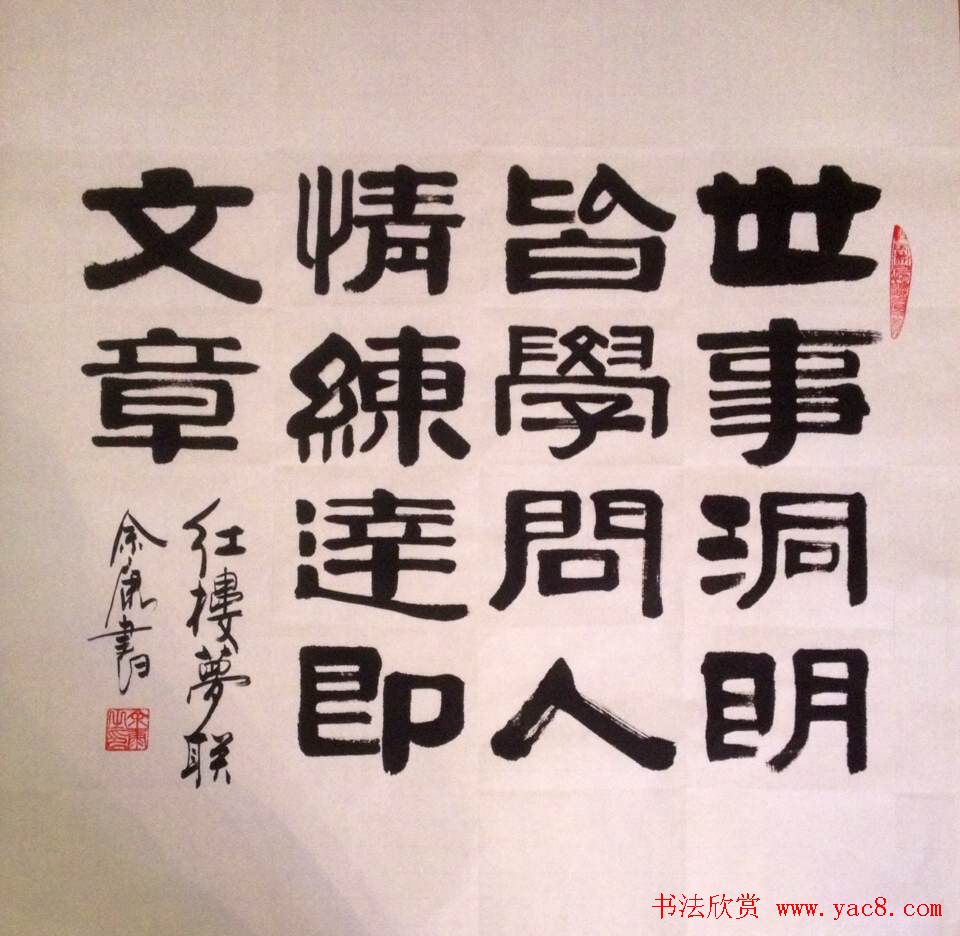 世事洞朗
皆學問人
情練達即
文章
红樓夢联
余康書
书法欣赏 www.yac8.com